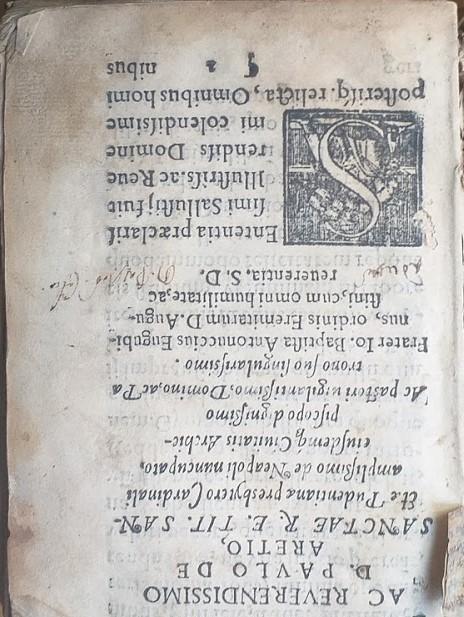 AC REVERENDISSIMO
D. PAVLO DE
ARETIO,
SANCTAE R. E. TIT. SAN-
ctæ Pudentianæ presbytero Cardinali
amplißimo de Neapoli nuncupato,
eiusdemq́; Ciuitatis Archie-
piscopo dignißimo
Ac pastori uigilantißimo, Domino, ac Pa
trono suo singularißimo.
Frater Io. Baptista Antonuccius Eugubi-
nus, ordinis Eremitarum D. Augu-
stini, cum omni humilitate, ac
reuerentia. S. D.
SEntentia præclaris
simi Sallustij fuit
Illustriss. ac Reue
rendiss Domine
mi colendissime
posterisq. relicta, Omnibus homi
¶ 2 nibus